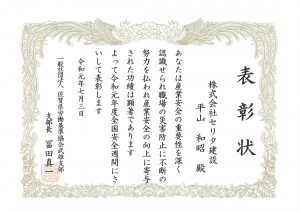 表彰状
株式会社セリタ建設
平山 和昭 殿
あなたは産業安全の重要性を深く
認識せられ職場の災害防止に不断の
努力を払われ産業安全の向上に寄与
された功績は顕著であります
よって令和元年度全国安全週間にさ
いして表彰します
令和元年七月三日
一般社団法人 佐賀県労働基準協会武雄支部
支部長 冨田 真一